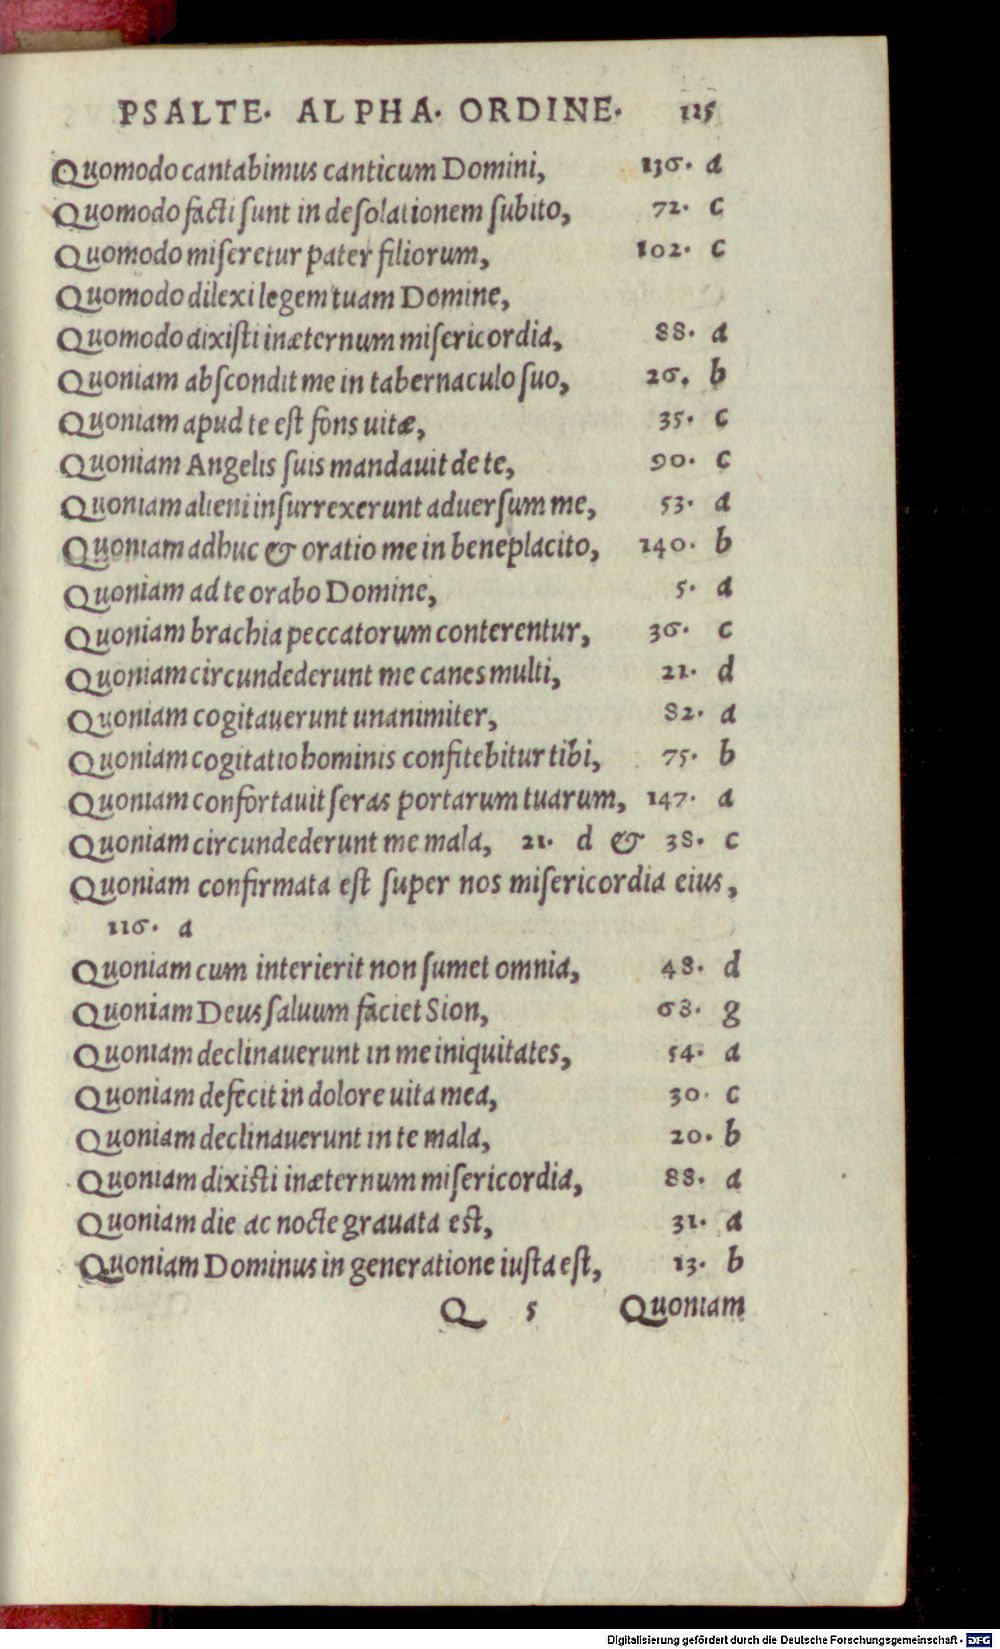 PSALTE. ALPHA. ORDINE. 125
Quomodo cantabimus canticum Domini, 136. a
Quomodo facti sunt in desolationem subito, 72. c
Quomodo miseretur pater filiorum, 102. c
Quomodo dilexi legem tuam Domine,
Quomodo dixisti inæternum misericordia, 88. a
Quoniam abscondit me in tabernaculo suo, 26. b
Quoniam apud te est fons uitæ, 35. c
Quoniam Angelis suis mandauit de te, 90. c
Quoniam alieni insurrexerunt aduersum me, 53. a
Quoniam adhuc & oratio me in beneplacito, 140. b
Quoniam ad te orabo Domine, 5. a
Quoniam brachia peccatorum conterentur, 36. c
Quoniam circundederunt me canes multi, 21. d
Quoniam cogitauerunt unanimiter, 82. a
Quoniam cogitatio hominis confitebitur tibi, 75. b
Quoniam confortauit seras portarum tuarum, 147. a
Quoniam circundederunt me mala, 21. d & 38. c
Quoniam confirmata est super nos misericordia eius,
116. a
Quoniam cum interierit non sumet omnia, 48. d
Quoniam Deus saluum faciet Sion, 68. g
Quoniam declinauerunt in me iniquitates, 54. a
Quoniam defecit in dolore uita mea, 30. c
Quoniam declinauerunt in te mala, 20. b
Quoniam dixisti inæternum misericordia, 88. a
Quoniam die ac nocte grauata est, 31. a
Quoniam Dominus in generatione iusta est, 13. b
Q 5 Quoniam
Digitalisierung gefördert durch die Deutsche Forschungsgemeinschaft - DFG